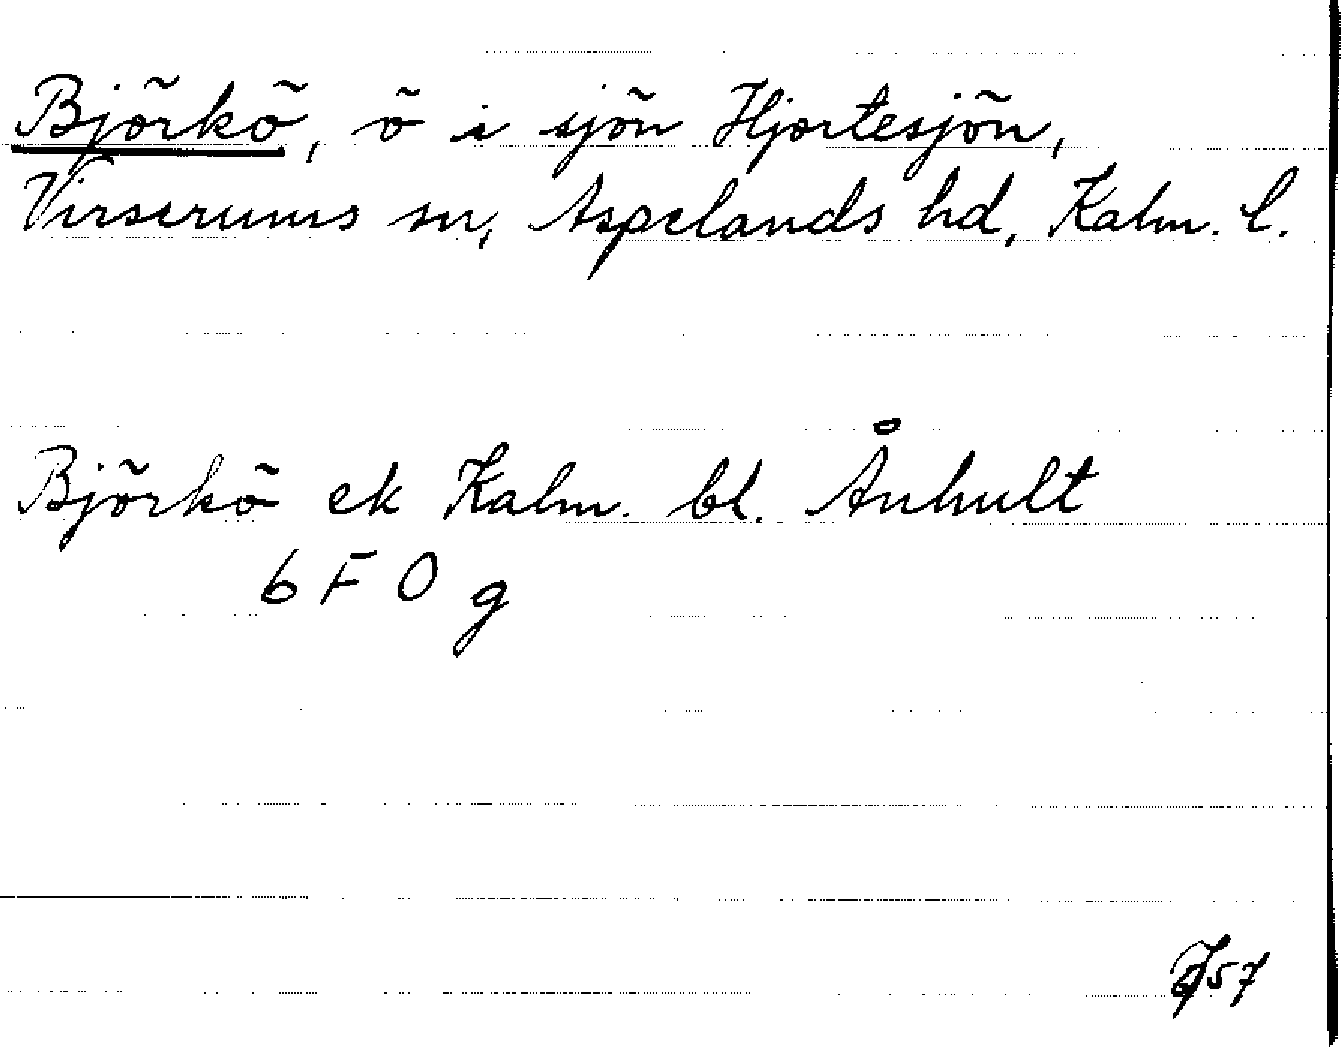 Björkö, ö i sjön Hjortesjön,
Virserums sn, Aspelands hd, Kalm. l.
Björkö ek Kalm. bl. Ånhult
6 F 0 g
57